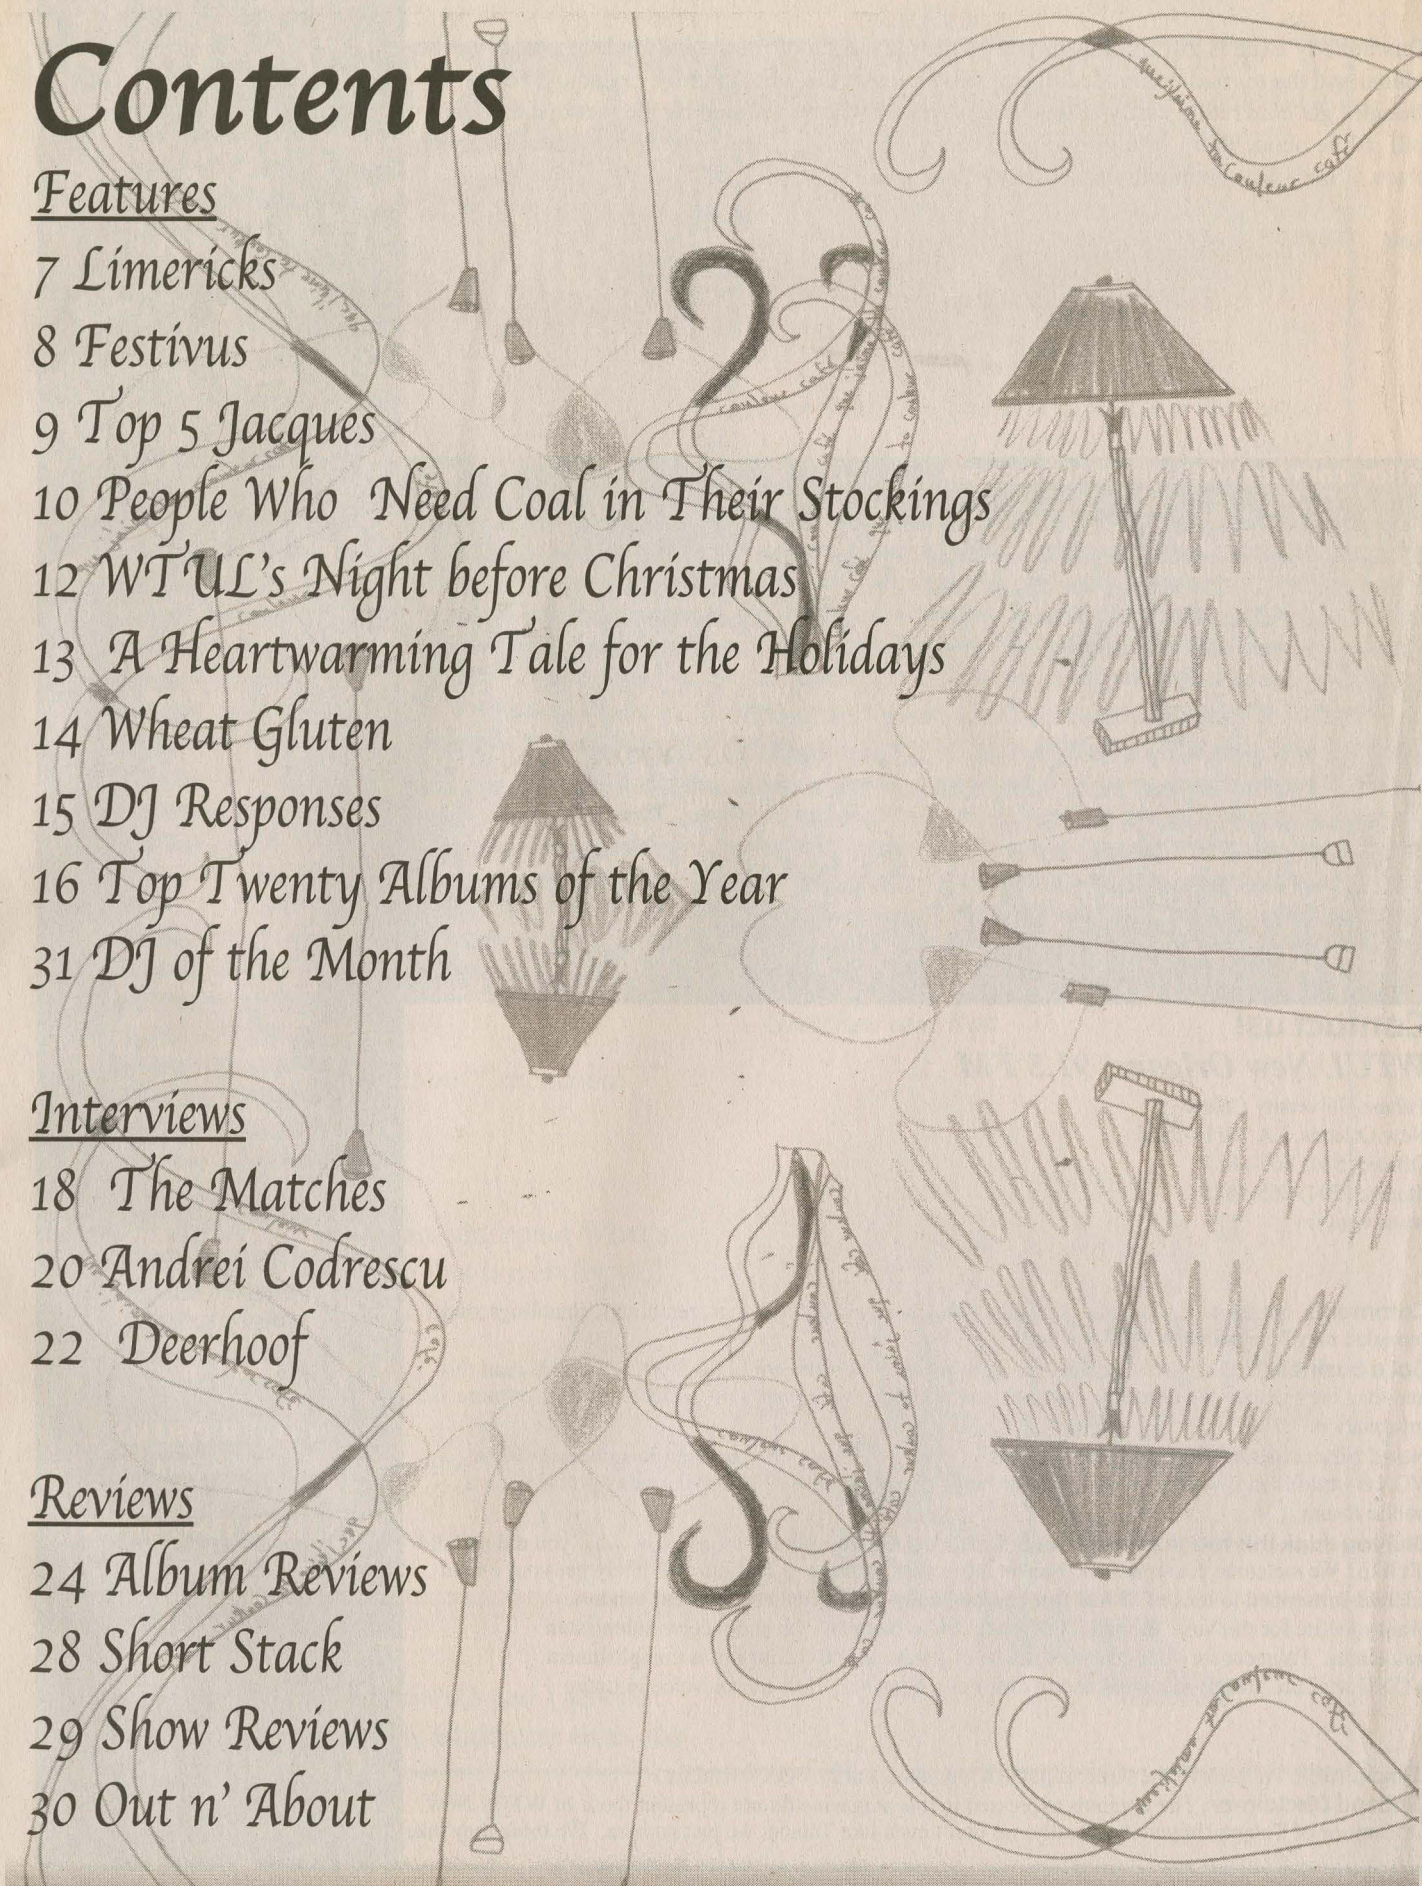 Contents
Features
7 Limericks
8 Festivus
9 Top 5 Jacques
10 People Who Need Coal in Their Stockings
12 WTUL's Night before Christmas
13 A Heartwarming Tale for the Holidays
14 Wheat Gluten
15 DJ Responses
16 Top Twenty Albums of the Year
31 DJ of the Month
Interviews
18 The Matches
20 Andrei Codrescu
22 Deerhoof
Reviews
24 Album Reviews
28 Short Stack
29 Show Reviews
30 Out n' About
couleur café